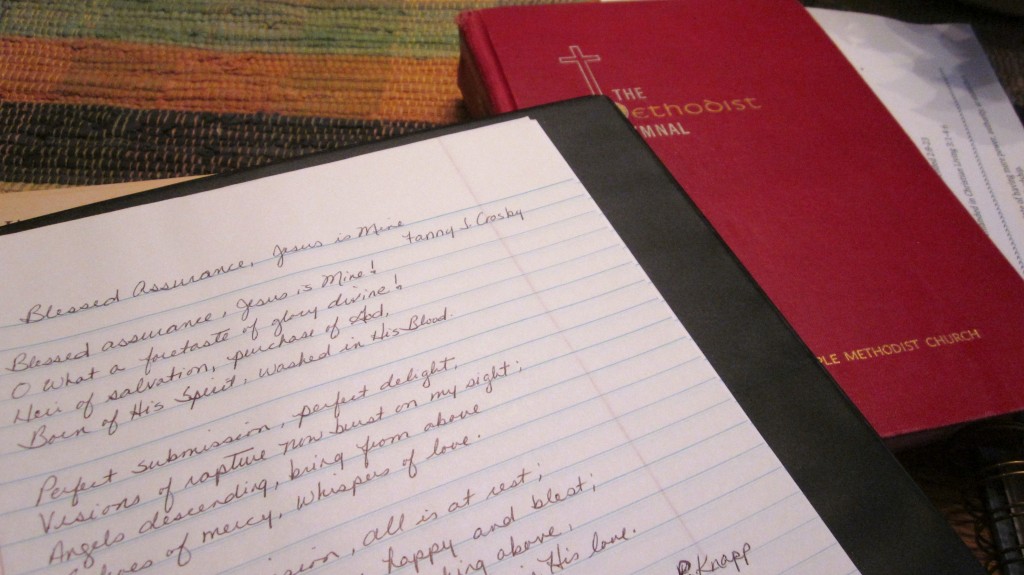 THE
Methodist
HYMNAL
PLE METHODIST CHURCH
Blessed Assurance, Jesus is Mine
Fanny J. Crosby
Blessed assurance, Jesus is Mine!
O What a foretaste of glory divine!
Heir of salvation, purchase of God,
Born of His Spirit, washed in His Blood.
Perfect submission, perfect delight,
Visions of rapture now burst on my sight;
Angels descending, bring from above
of mercy, whispers of love.
ission, all is at rest;
happy and blest;
king above,
in His love.
P. Knapp